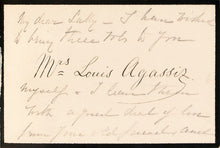 My dear Lady – I have wished
to bring these vols to you
Mrs Louis Agassiz.
myself & I leave them
with a great deal of love
from your old friend and